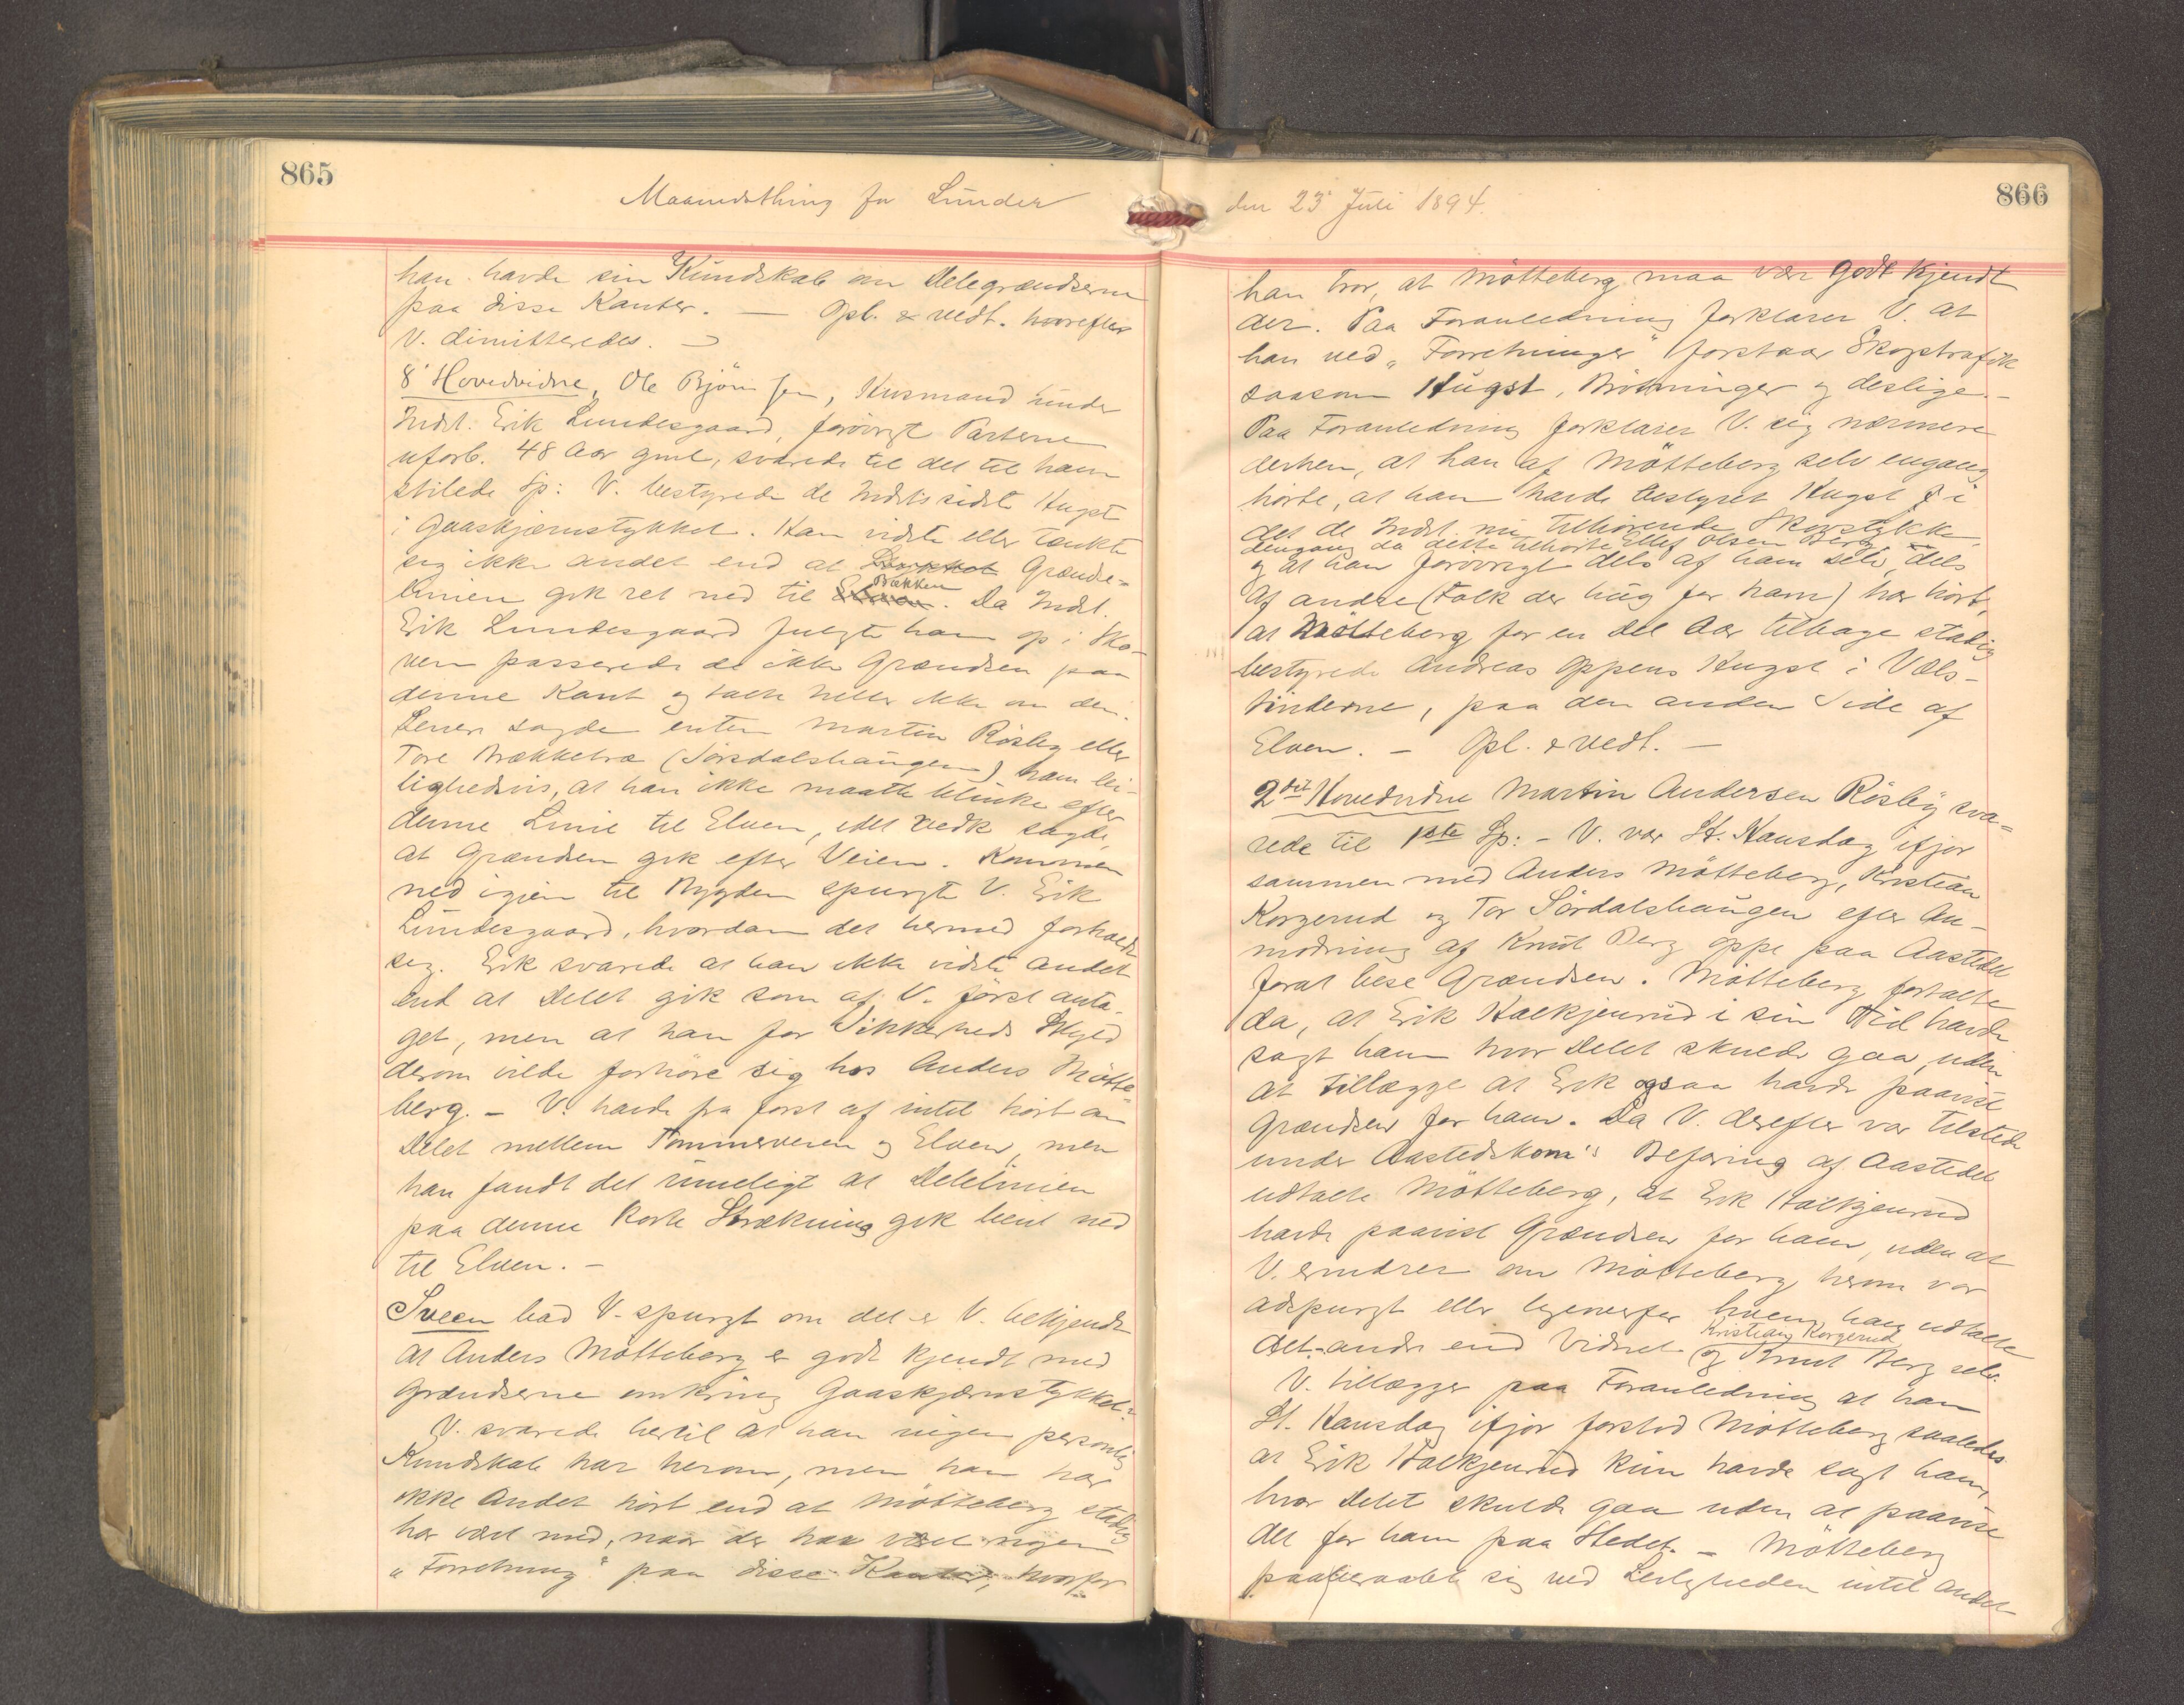 865
Maanedsthing for Lunder
han havde sin Kundskab om Delegrændserne
paa disse Kanter. — Opl. & vedt. hvorefter
V. dimitteredes. —
8' Hovedvidne, Ole Bjørnsen, Husmand under
Indst. Erik Lundesgaard, forövrigt Parterne
uforb. 48 Aar gml, svarede til det til ham
stilede Sp: V. bestyrede de Indst's sidste Hugst
i Gaaskjærnstykket. Han vidste eller tænkte
sig ikke andet end at Grændse-
linien gik ret ned til Bækken. Da Indst.
Erik Lundesgaard fulgte ham op i Sko-
ven passerede de ikke Grændsen paa
denne Kant og talte heller ikke om den.
Senere sagde enten Martin Rösby eller
Tore Brækketræ (Sørdalshaugen) ham lei-
lighedsvis, at han ikke maatte blinke efter
denne Linie til Elven, idet vedk sagde,
at Grændsen gik efter Veien. Kommen
ned igjen til Bygden spurgte V. Erik
Lundesgaard, hvordan det hermed forholdt
sig. Erik svarede at han ikke vidste andet
end at Delet gik som af V. först anta-
get, men at han for Sikkerheds Skyld
derom vilde forhöre sig hos Anders Mötte-
berg. — V. havde fra först af intet hört om
Delet mellem Tømmerveien og Elven, men
han fandt det rimeligt at Delelinien
paa denne korte Strækning gik bent ned
til Elven. —
Sveen bad V. spurgt om det er V. bekjendt
at Anders Mötteberg er godt kjendt med
Grændserne omkring Gaaskjærnstykket?
V. svarede hertil at han ingen personlig
Kundskab har herom, men han har
ikke andet hört end at Mötteberg stadig
har været med, naar der har været nogen
"Forretning" paa disse Kanter, hvorfor
den 23' Juli 1894.
866
han tror, at Mötteberg maa være godt kjendt
der. Paa Foranledning forklarer V. at
han ved "Forretninger" forstaar Skogstrafik
saasom Hugst, Brötninger og deslige. —
Paa Foranledning forklarer V. sig nærmere
derhen, at han af Mötteberg selv engang
hörte, at han havde bestyret Hugst i
det de Indst. nu tilhörende Skovstykke,
dengang da dette tilhörte Ellef Olsen Berg
og at han forövrigt dels af ham selv, dels
af andre (Folk der hug for ham) har hört,
at Mötteberg for en del Aar tilbage stadig
bestyrede Andreas Oppens Hugst i Væls-
tinderne, paa den anden Side af
Elven. — Opl. & vedt. —
2det Hovedvidne Martin Andersen Rösby sva-
rede til 1ste Sp: — V. var St. Hansdag ifjor
sammen med Anders Mötteberg, Kristian
Korgerud og Tor Sørdalshaugen efter An-
modning af Knut Berg oppe paa Aastedet
forat bese Grændsen. Mötteberg fortalte
da, at Erik Kalkjenrud i sin Tid havde
sagt ham hvor Delet skulde gaa, uden
at tillægge at Erik ogsaa havde paavist
Grændsen for ham. Da V. derefter var tilstede
under Aastedskom's Befaring af Aastedet
udtalte Mötteberg, at Erik Kalkjenrud
havde paavist Grændsen for ham, uden at
V. erindrer om Mötteberg herom var
adspurgt eller ligeoverfor hvem han udtalte
det. andre end Vidnet Kristian Korgerud og Knut Berg selv.
V. tillægger paa Foranledning at han
St. Hansdag ifjor forstod Mötteberg saaledes
at Erik Kalkjenrud kun havde sagt ham,
hvor Delet skulde gaa uden at paavise
det for ham paa Stedet. — Mötteberg
paaberaabte sig ved Leiligheden intet andet